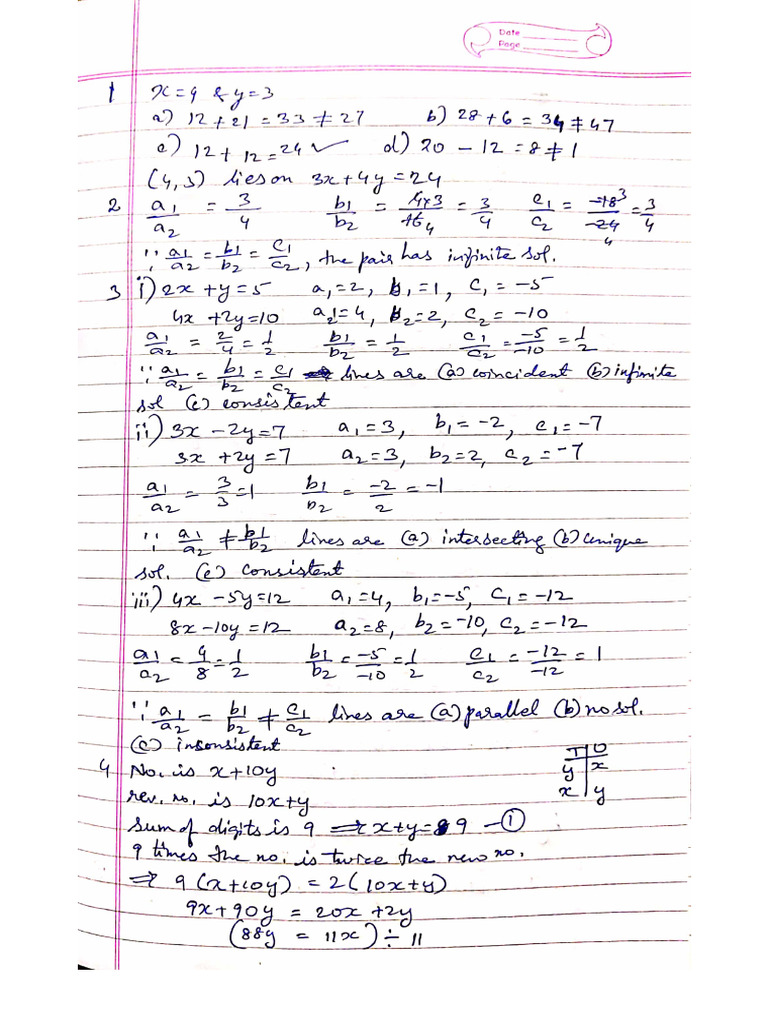 Date
Page
1 x=4 & y=3
a) 12+21=33≠27 b) 28+6=34≠47
c) 12+12=24✓ d) 20-12=8≠1
(4,3) lies on 3x+4y=24
2 a₁/a₂ = 3/4 b₁/b₂ = 4×3/16 4 = 3/4 c₁/c₂ = -18 3/-24 4 = 3/4
∵ a₁/a₂ = b₁/b₂ = c₁/c₂, the pair has infinite sol.
3 i) 2x+y=5 a₁=2, b₁=1, c₁=-5
4x+2y=10 a₂=4, b₂=2, c₂=-10
a₁/a₂ = 2/4 = 1/2 b₁/b₂ = 1/2 c₁/c₂ = -5/-10 = 1/2
∵ a₁/a₂ = b₁/b₂ = c₁/c₂ lines are (a) coincident (b) infinite
sol (c) consistent
ii) 3x-2y=7 a₁=3, b₁=-2, c₁=-7
3x+2y=7 a₂=3, b₂=2, c₂=-7
a₁/a₂ = 3/3 = 1 b₁/b₂ = -2/2 = -1
∵ a₁/a₂ ≠ b₁/b₂ lines are (a) intersecting (b) unique
sol. (c) consistent
iii) 4x-5y=12 a₁=4, b₁=-5, c₁=-12
8x-10y=12 a₂=8, b₂=-10, c₂=-12
a₁/a₂ = 4/8 = 1/2 b₁/b₂ = -5/-10 = 1/2 c₁/c₂ = -12/-12 = 1
∵ a₁/a₂ = b₁/b₂ ≠ c₁/c₂ lines are (a) parallel (b) no sol.
(c) inconsistent
T O
4 No. is x+10y y x
rev. no. is 10x+y x y
Sum of digits is 9 ⇒ x+y=9 -①
9 times the no. is twice the new no.
⇒ 9(x+10y) = 2(10x+y)
9x+90y = 20x+2y
(88y = 11x) ÷ 11